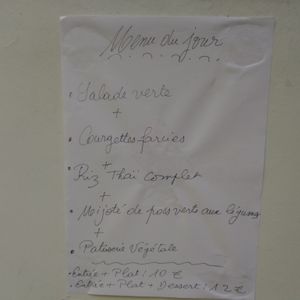 Menu du jour
• Salade verte
+
• Courgettes farcies
+
• Riz Thaï complet
+
• Mijoté de pois verts aux légumes
+
• Patisserie Végétale
• Entrée + Plat : 10 €
• Entrée + Plat + Dessert : 12 €